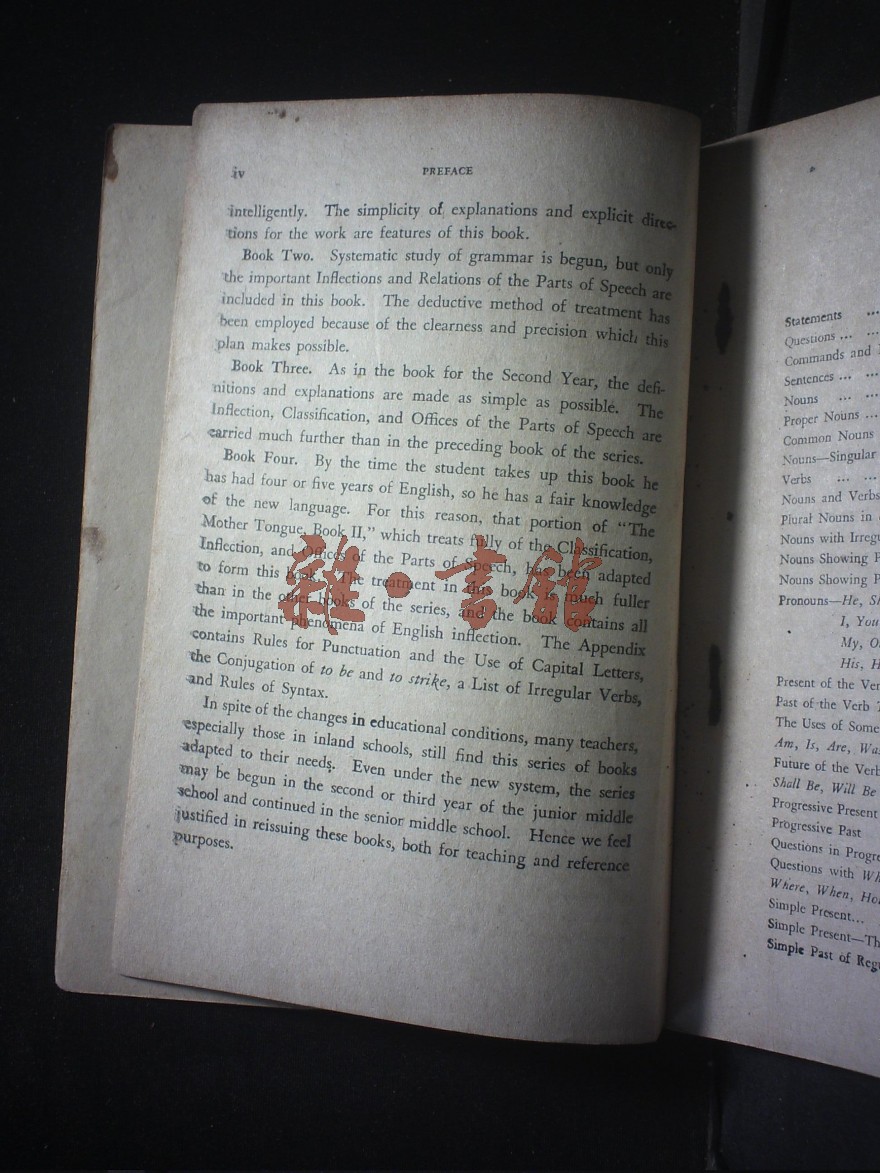 iv
PREFACE
intelligently. The simplicity of explanations and explicit direc-
tions for the work are features of this book.
Book Two. Systematic study of grammar is begun, but only
the important Inflections and Relations of the Parts of Speech are
included in this book. The deductive method of treatment has
been employed because of the clearness and precision which this
plan makes possible.
Book Three. As in the book for the Second Year, the defi-
nitions and explanations are made as simple as possible. The
Inflection, Classification, and Offices of the Parts of Speech are
carried much further than in the preceding book of the series.
Book Four. By the time the student takes up this book he
has had four or five years of English, so he has a fair knowledge
of the new language. For this reason, that portion of "The
Mother Tongue, Book II," which treats fully of the Classification,
Inflection, and Offices of the Parts of Speech, has been adapted
to form this book. The treatment in this book is much fuller
than in the other books of the series, and the book contains all
the important phenomena of English inflection. The Appendix
contains Rules for Punctuation and the Use of Capital Letters,
the Conjugation of to be and to strike, a List of Irregular Verbs,
and Rules of Syntax.
In spite of the changes in educational conditions, many teachers,
especially those in inland schools, still find this series of books
adapted to their needs. Even under the new system, the series
may be begun in the second or third year of the junior middle
school and continued in the senior middle school. Hence we feel
justified in reissuing these books, both for teaching and reference
purposes.
雜·書館
Statements ...
Questions ... ...
Commands and
Sentences ... ...
Nouns ... ...
Proper Nouns ...
Common Nouns
Nouns—Singular
Verbs ... ...
Nouns and Verbs
Plural Nouns in
Nouns with
Nouns Showing
Nouns Showing
Pronouns—He,
I, You
My,
His,
Present of the
Past of the Verb
The Uses of Some
Am, Is, Are,
Future of the Verb
Shall Be, Will Be
Progressive Present
Progressive Past
Questions in
Questions with
Where, When,
Simple Present...
Simple Present—
Simple Past of